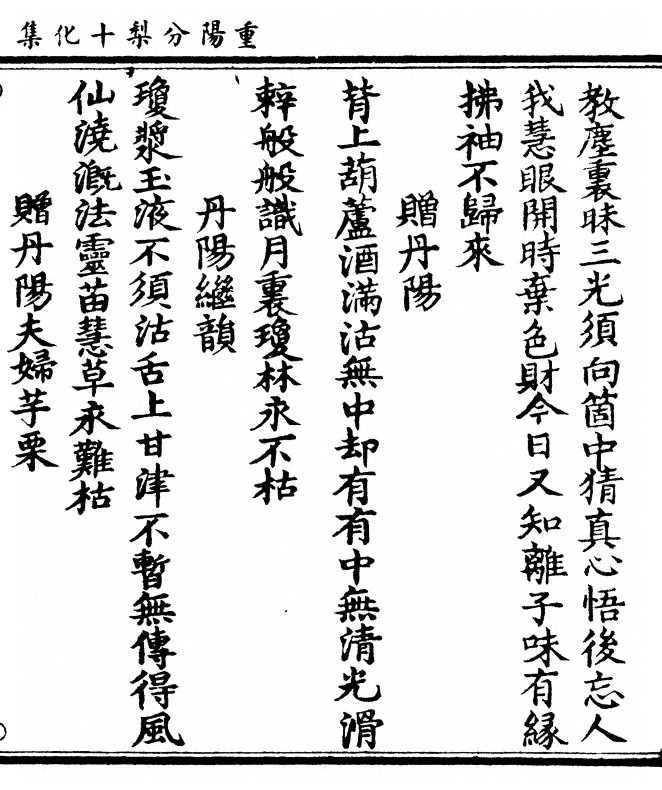 重陽分梨十化集
教塵裏昧三光須向箇中猜真心悟後忘人
我慧眼開時棄色財今日又知離子味有緣
拂袖不歸來
贈丹陽
背上葫蘆酒滿沽無中却有有中無清光滑
辢般般識月裏瓊林永不枯
丹陽繼韻
瓊漿玉液不須沽舌上甘津不暫無傳得風
仙澆溉法靈苗慧草永難枯
贈丹陽夫婦芋栗